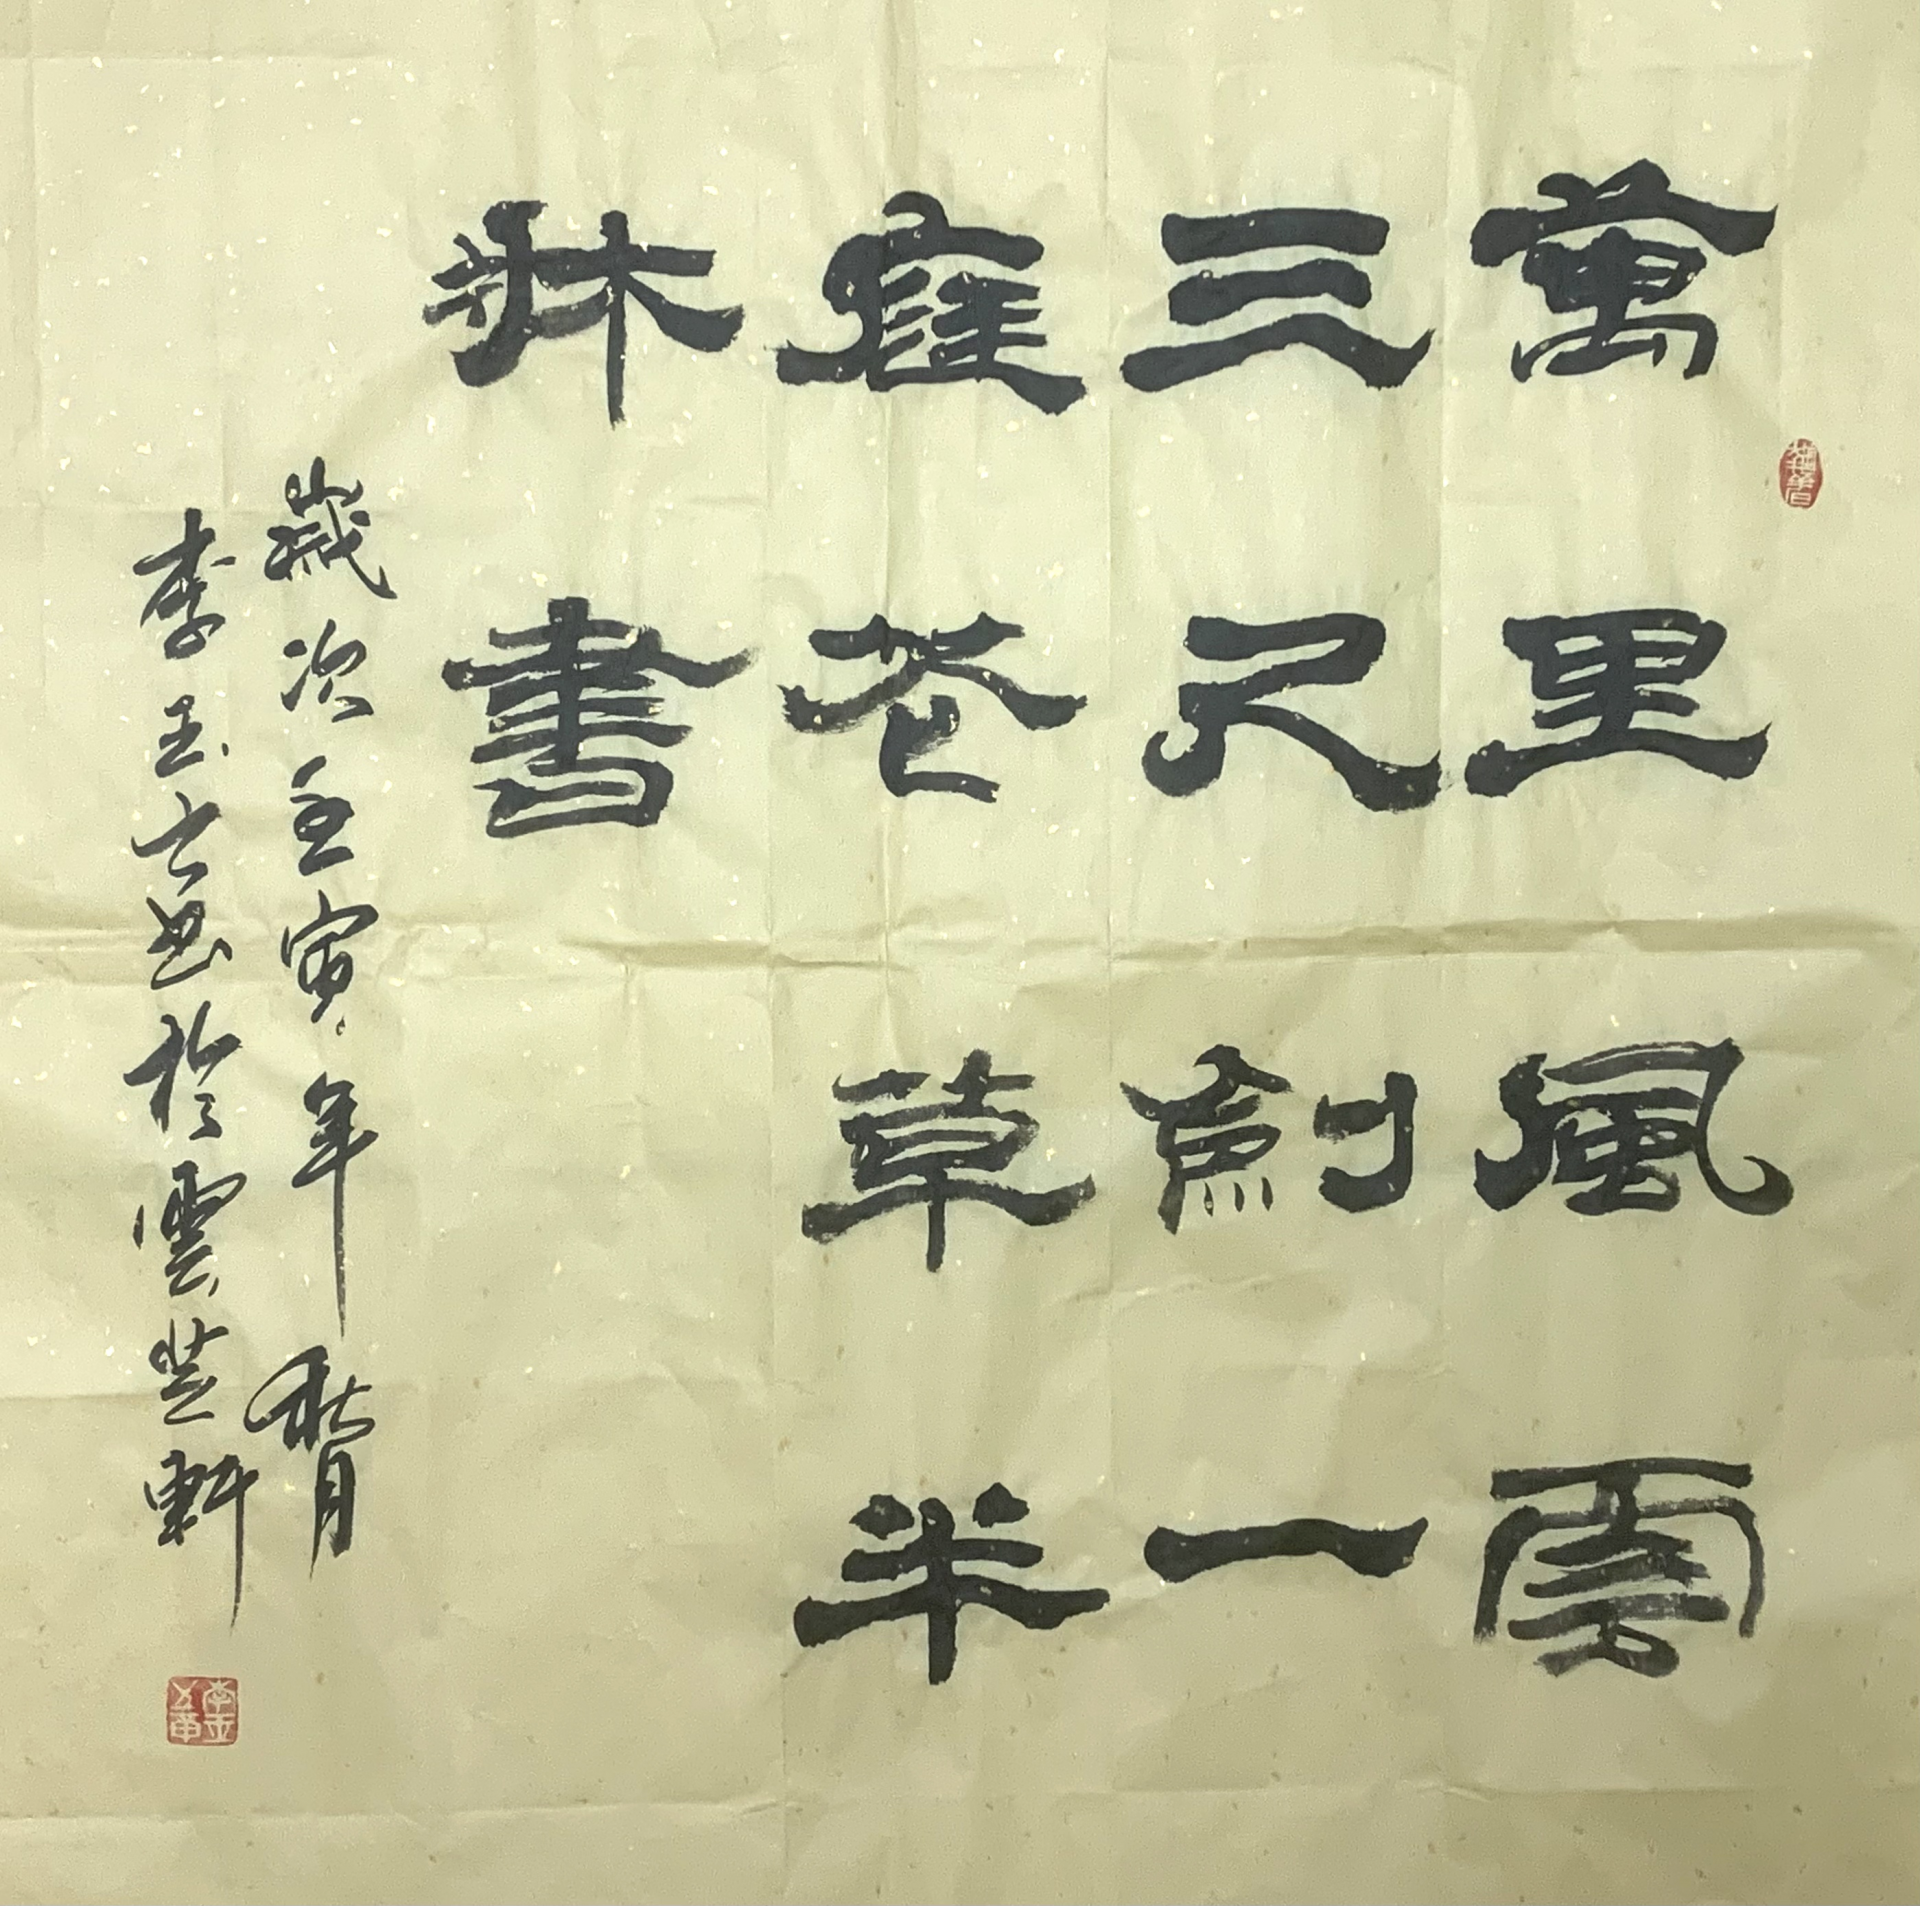 萬里風雲
三尺劍一
庭花草半
牀書
歲次壬寅年秋月
李玉書於雲軒